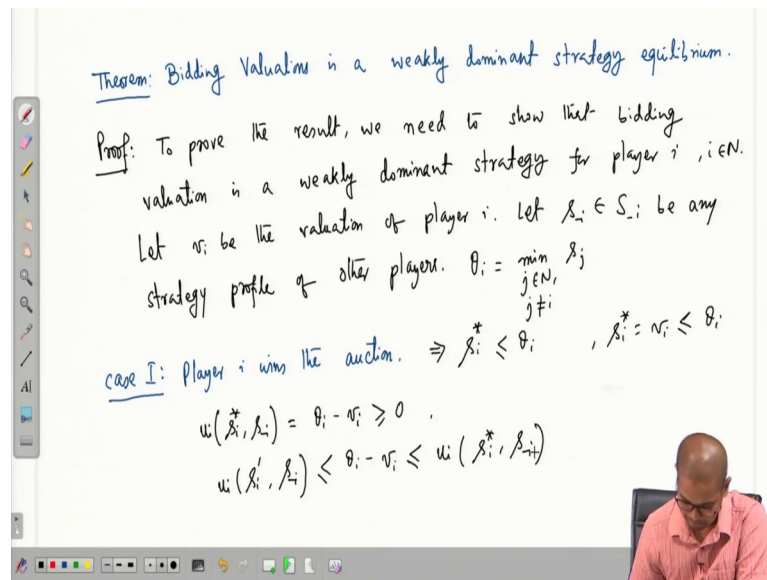 Theorem: Bidding Valuations is a weakly dominant strategy equilibrium.
Proof: To prove the result, we need to show that bidding
valuation is a weakly dominant strategy for player i, i∈N.
Let vᵢ be the valuation of player i. Let s₋ᵢ ∈ S₋ᵢ be any
strategy profile of other players. θᵢ = min sⱼ
j∈N,
j≠i
case I: Player i wins the auction. ⇒ sᵢ* ≤ θᵢ , sᵢ* = vᵢ ≤ θᵢ
uᵢ(sᵢ*, s₋ᵢ) = θᵢ - vᵢ ≥ 0 .
uᵢ(sᵢ', s₋ᵢ) ≤ θᵢ - vᵢ ≤ uᵢ(sᵢ*, s₋ᵢ)
AI